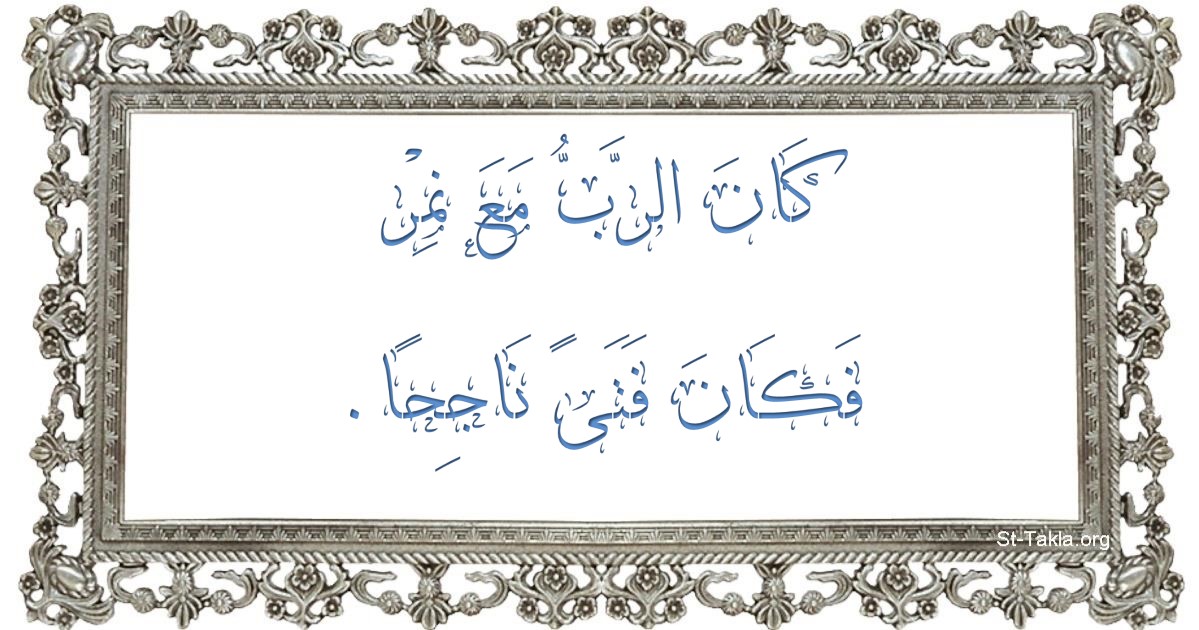 كَانَ الرَّبُّ مَعَ نِمِرْ
فَكَانَ فَتَىً نَاجِحًا .
St-Takla.org